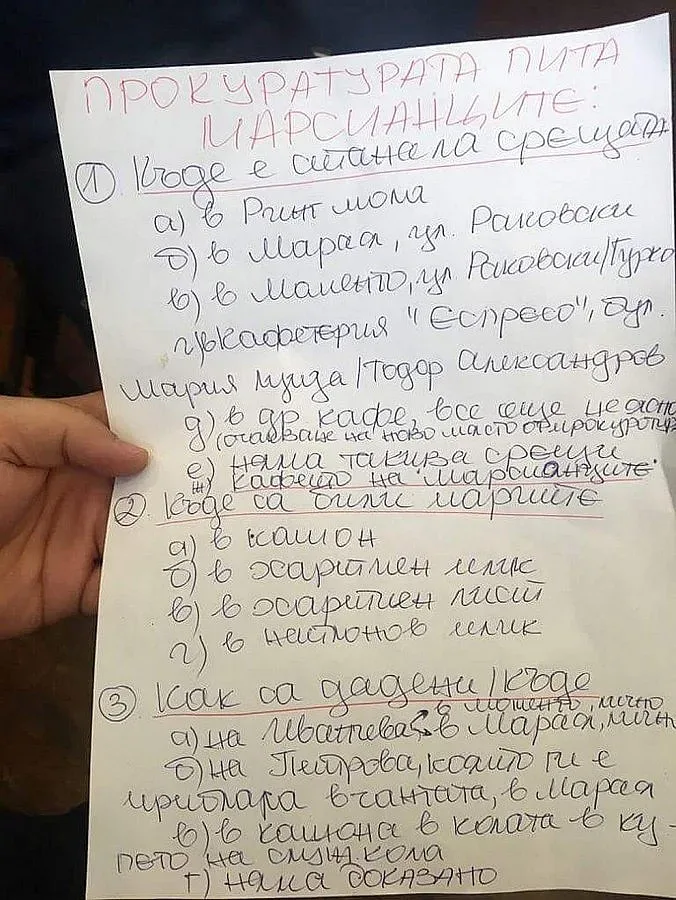 ПРОКУРАТУРАТА ПИТА
МАРСИАНЦИТЕ:
1 Къде е станала срещата
а) в Ринг мола
б) в Марая, ул. Раковски
в) в Моменто, ул. Раковски/Гурко
г) в кафетерия "Еспресо", бул.
Мария Луиза/Тодор Александров
д) в др. кафе, все още неясно
(очакване на ново място от прокуратура
е) няма такива срещи
ж) кафето на марсианците.
2. Къде са били парите
а) в кашон
б) в хартиен плик
в) в хартиен лист
г) в найлонов плик
3 Как са дадени/къде
а) на Иванчева в Моменто, лично
в Марая, лично
б) на Петрова, която ги е
прибрала в чантата, в Марая
в) в кашона в колата в ку-
пето на служ. кола
г) няма доказано